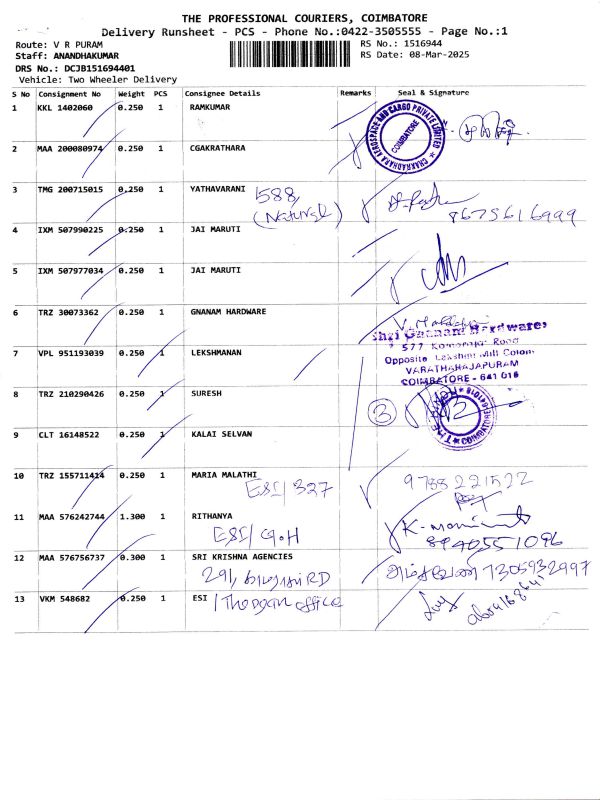 THE PROFESSIONAL COURIERS, COIMBATORE
Delivery Runsheet - PCS - Phone No.:0422-3505555 - Page No.:1
Route: V R PURAM
RS No.: 1516944
Staff: ANANDHAKUMAR
RS Date: 08-Mar-2025
DRS No.: DCJB151694401
Vehicle: Two Wheeler Delivery
S No Consignment No Weight PCS Consignee Details Remarks Seal & Signature
1 KKL 1402060 0.250 1 RAMKUMAR
CHAKRADHARA AEROSPACE AND CARGO PRIVATE LIMITED
COIMBATORE
2 MAA 200080974 0.250 1 CGAKRATHARA
3 TMG 200715015 0.250 1 YATHAVARANI 1588,
(Natural) 8675616999
4 IXM 507990225 0.250 1 JAI MARUTI
5 IXM 507977034 0.250 1 JAI MARUTI
6 TRZ 30073362 0.250 1 GNANAM HARDWARE
Shri Gnanam Hardwares
577 Kamarajar Road
Opposite Lakshmi Mill Colony
VARATHARAJAPURAM
COIMBATORE - 641 015
7 VPL 951193039 0.250 1 LEKSHMANAN
8 TRZ 210290426 0.250 1 SURESH
3
COIMBATORE
9 CLT 16148522 0.250 1 KALAI SELVAN
10 TRZ 155711414 0.250 1 MARIA MALATHI
ESI/327 9788221522
11 MAA 576242744 1.300 1 RITHANYA
ESI/G.H 8940551096
12 MAA 576756737 0.300 1 SRI KRISHNA AGENCIES
291, RD 7305932997
13 VKM 548682 0.250 1 ESI
office